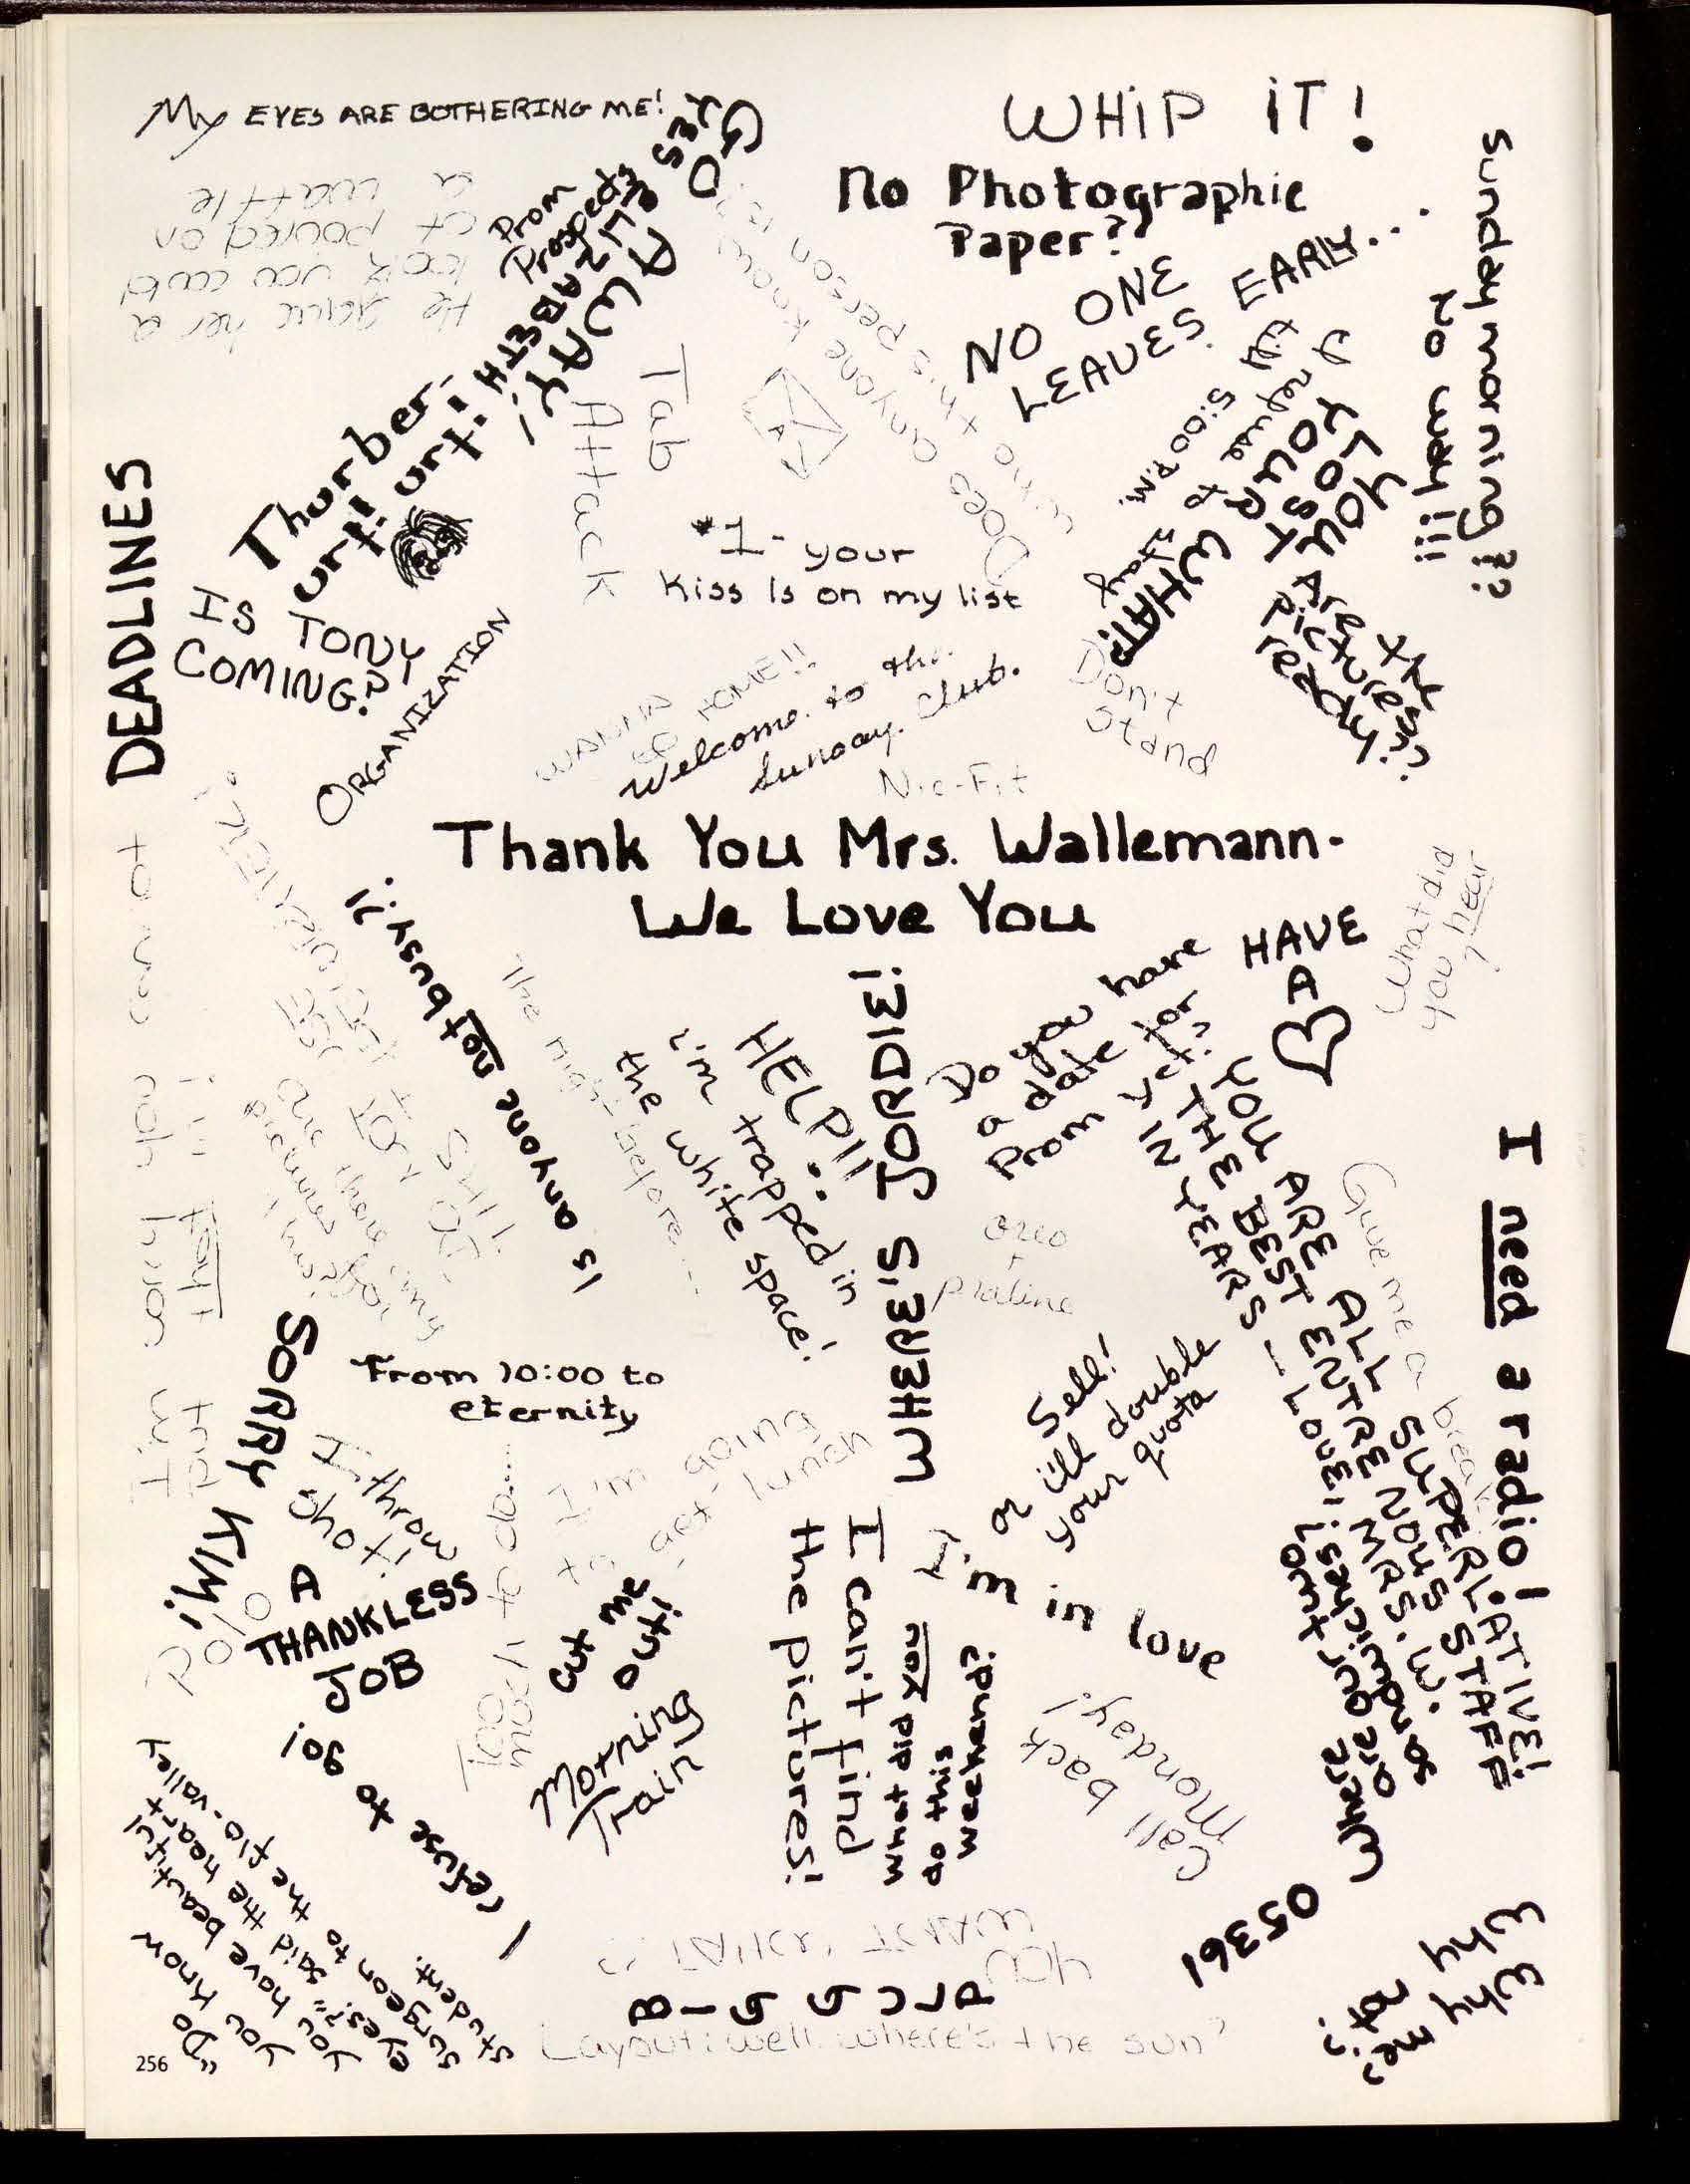 My EYES ARE BOTHERING ME!
WHiP iT!
No Photographic
Paper??
NO ONE
LEAVES EARLY...
Sunday morning??
No way!!!
GO
AWAY!
ELIZABETH
Prom
Prospects
He gave her a
look you could
of poured on
a waffle
Does anyone know
who this person is?
Tab
Attack
Thurber,
urt! urt! urt!
I refuse to stay
till 5:00 p.m.
YOU LOST
YOUR
WHAT?
Are the
pictures
ready?
DEADLINES
IS TONY
COMING?
ORGANIZATION
#1- your
Kiss Is on my list
WANNA
GO HOME!!
Welcome to the
Sunday Club.
Don't
Stand
Nic-Fit
Thank You Mrs. Wallemann-
We Love You
What did
you hear
?
HAVE
A
Do you have
a date for
Prom yet?
Is anyone not busy?!
The night before....
HELP!!
i'm trapped in
the white space!
WHERE'S JORDIE?!
YOU ARE ALL SUPERLATIVE!
THE BEST ENTRE NOUS STAFF
IN YEARS — LOVE, MRS. W.
I need a radio!
Give me a break
oreo
+
praline
From 10:00 to
eternity
SORRY KIM!
I throw
shot!
Polo
A
THANKLESS
JOB
Too much to do.....
I'm going
to get lunch
cut me
out!
Morning
Train
I can't find
the pictures!
Sell!
or i'll double
your quota
hey, i'm in love
what did you
do this
weekend?
Call back
Monday!
Where are our
sandwiches?
I refuse to go!
"Do you know
you have beautiful
eyes?" said the heart
surgeon to the flo-valley
student.
05361
Why
Why
not
me?
BIG GULP
Layout: well where's the sun?
256